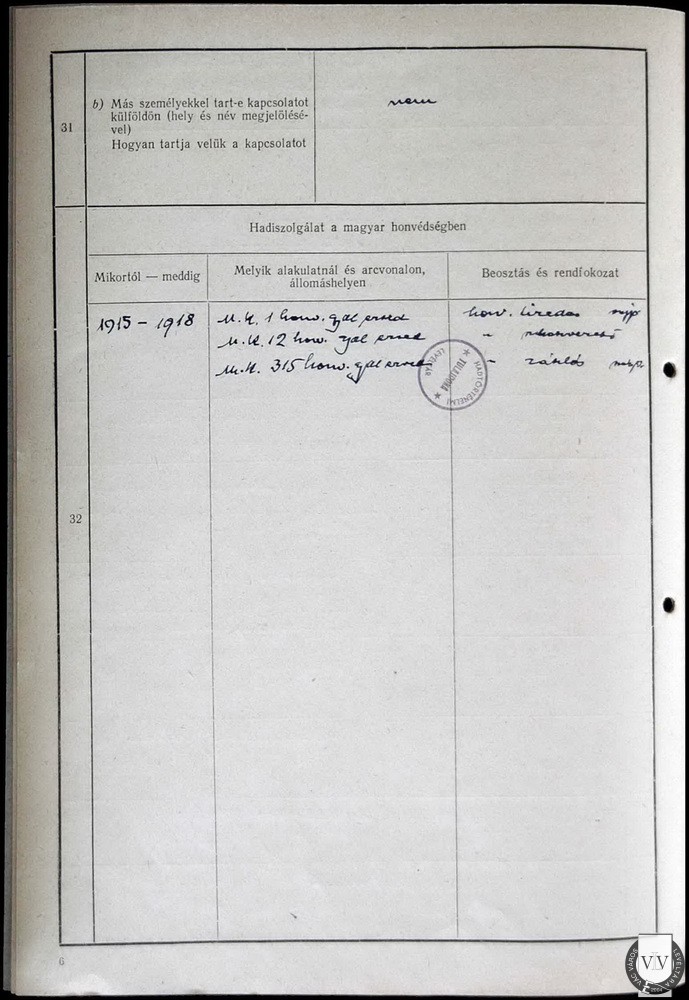 31
b) Más személyekkel tart-e kapcsolatot
külföldön (hely és név megjelölésé-
vel)
Hogyan tartja velük a kapcsolatot
nem
32
Hadiszolgálat a magyar honvédségben
Mikortól — meddig
Melyik alakulatnál és arcvonalon,
állomáshelyen
Beosztás és rendfokozat
1915 – 1918
M. K. 1 honv. gyal ezred
honv.
M. K. 12 honv. gyal ezred
"
M. K. 315 honv. gyal ezred
"
HADTÖRTÉNELMI LEVÉLTÁR
TULAJDONA
6
VÁC VÁROS LEVÉLTÁRA
VLV